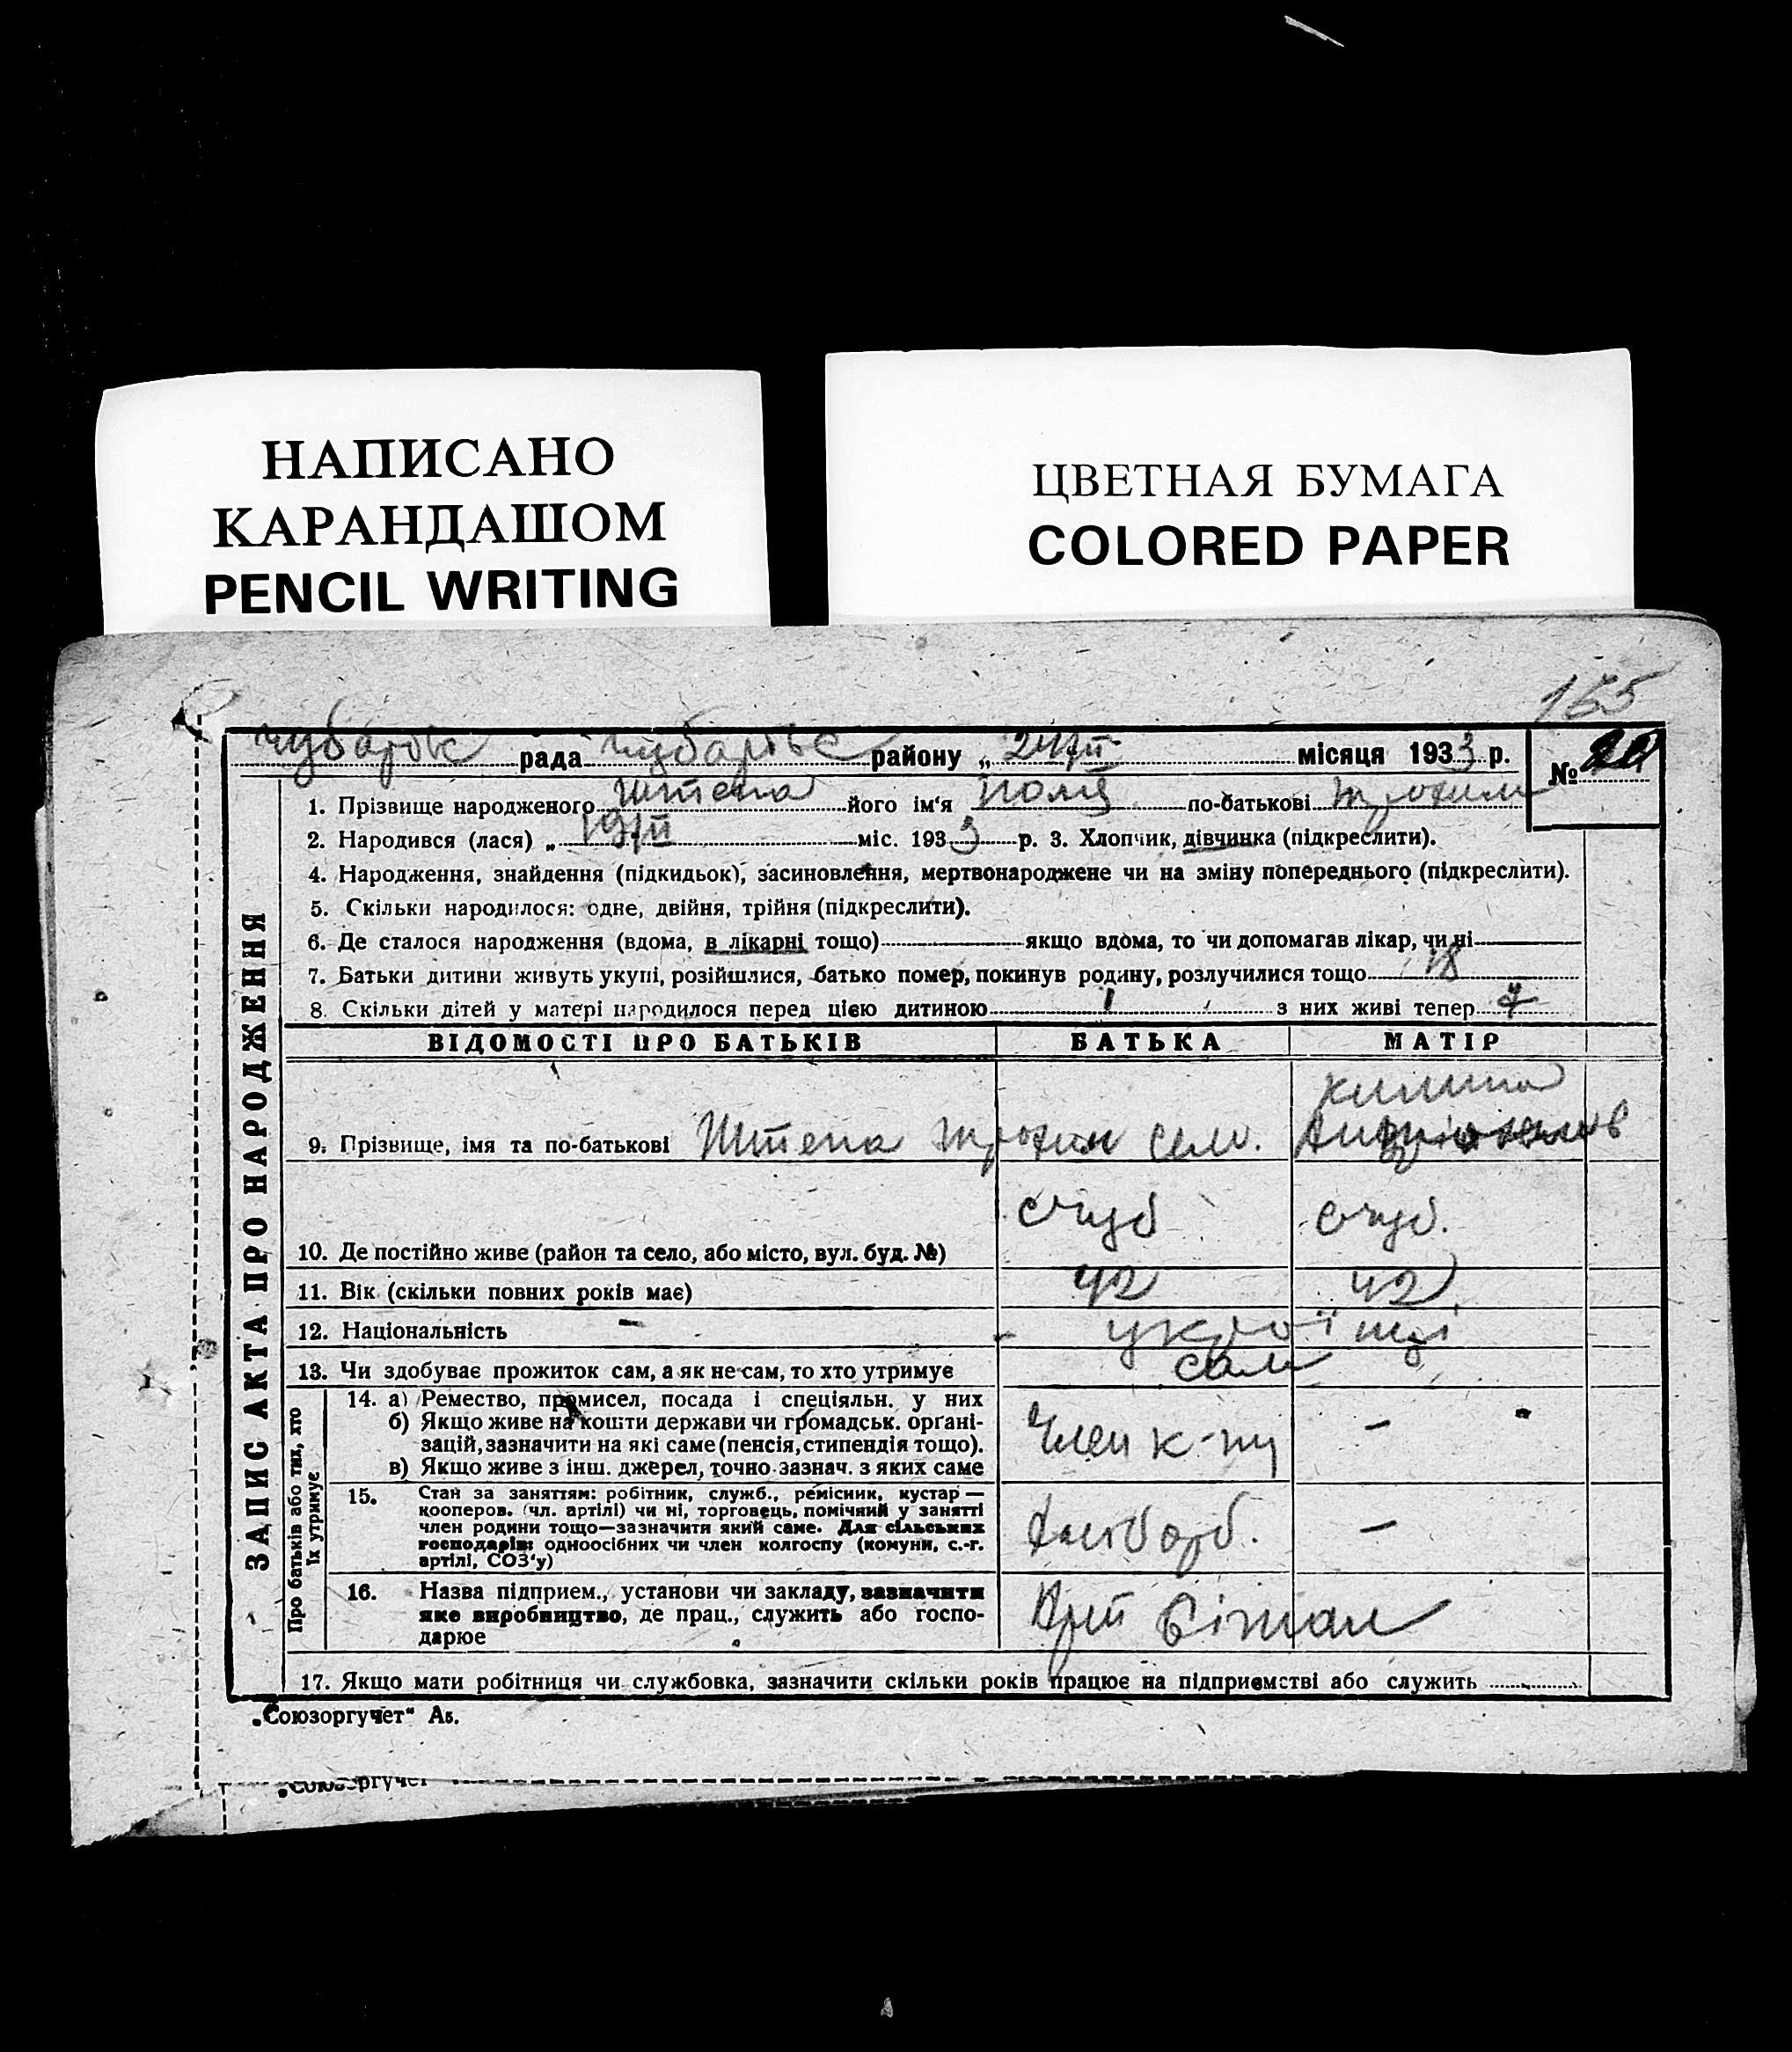 НАПИСАНО
КАРАНДАШОМ
PENCIL WRITING
ЦВЕТНАЯ БУМАГА
COLORED PAPER
165
рада району „ 24/II місяця 1933 р. №
1. Прізвище народженого Штепа його ім‘я по-батькові Трохим
2. Народився (лася) „ 19/II міс. 1933 р. 3. Хлопчик, дівчинка (підкреслити).
4. Народження, знайдення (підкидьок), засиновлення, мертвонароджене чи на зміну попереднього (підкреслити).
5. Скільки народилося: одне, двійня, трійня (підкреслити).
6. Де сталося народження (вдома, в лікарні тощо) якщо вдома, то чи допомагав лікар, чи ні
7. Батьки дитини живуть укупі, розійшлися, батько помер, покинув родину, розлучилися тощо 18
8. Скільки дітей у матері народилося перед цією дитиною з них живі тепер 7
ЗАПИС АКТА ПРО НАРОДЖЕННЯ
ВІДОМОСТІ ПРО БАТЬКІВ БАТЬКА МАТІР
Килина
9. Прізвище, імя та по-батькові Штепа Трохим Сем.
с Чуб с Чуб.
10. Де постійно живе (район та село, або місто, вул. буд. №)
11. Вік (скільки повних років має) 42 42
12. Національність – українці
13. Чи здобуває прожиток сам, а як не сам, то хто утримує сам
Про батьків або тих, хто їх утримує
14. а) Ремество, промисел, посада і спеціяльн. у них
б) Якщо живе на кошти держави чи громадськ. орґані-
зацій, зазначити на які саме (пенсія, стипендія тощо).
в) Якщо живе з інш. джерел, точно зазнач. з яких саме
Член к-пу –
15. Стан за заняттям: робітник, служб., ремісник, кустар —
кооперов. (чл. артілі) чи ні, торговець, помічний у занятті
член родини тощо—зазначити який саме. Для сільських
господарів: одноосібних чи член колгоспу (комуни, с.-г.
артілі, СОЗ‘у)
–
16. Назва підприєм., установи чи закладу, зазначити
яке виробництво, де прац., служить або госпо-
дарюе
17. Якщо мати робітниця чи службовка, зазначити скільки років працює на підприємстві або служить
„Союзоргучет“ Аб.
„Союзоргучет